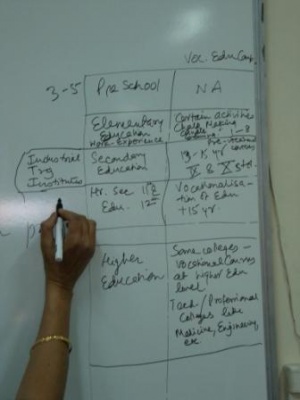 Voc. Edu Comp.
3-5 Pre School NA
Elementary
Education
Work-Experience
Certain activities
Chalk Making
1-8
Industrial
Trg
Institutes
Secondary
Education
Pre-
13-15 yr
IX & X Std.
Hr. Sec 11th
Edu. 12th
Vocationalisa-
tion of Edu
+15 yr.
Higher
Education
Some colleges -
Vocational Courses
at higher Edu
level.
Tech / Professional
Colleges like
Medicine, Engineering
etc.